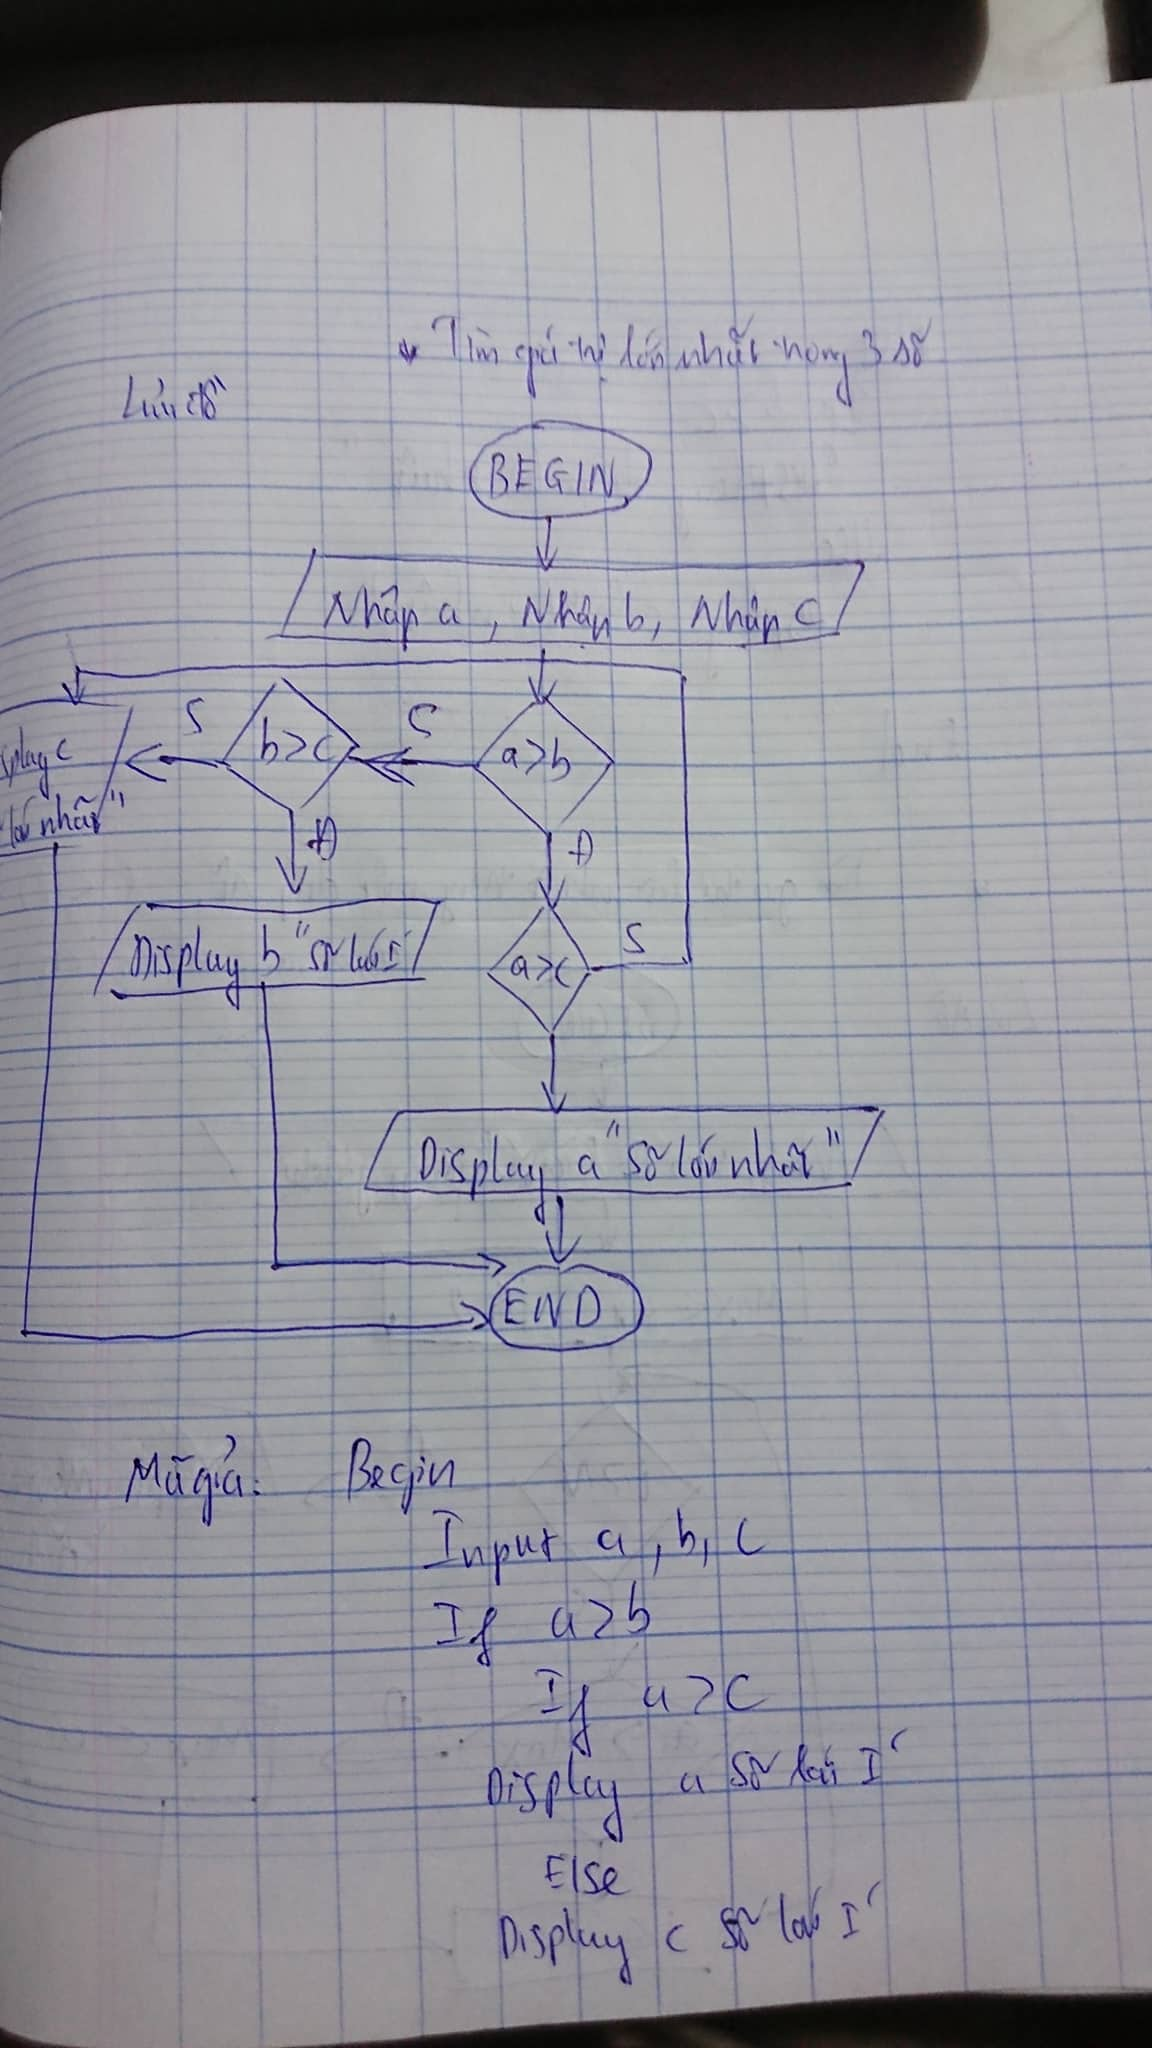 * Tìm giá trị lớn nhất trong 3 số
Lưu đồ
BEGIN
Nhập a, Nhập b, Nhập c
S
b>c
S
a>b
splay c
lớn nhất"
Đ
Đ
Display b "số lớn I
a>c
S
Display a "số lớn nhất"
END
Mã giả: Begin
Input a, b, c
If a>b
If a>c
Display a số lớn I'
Else
Display c số lớn I'